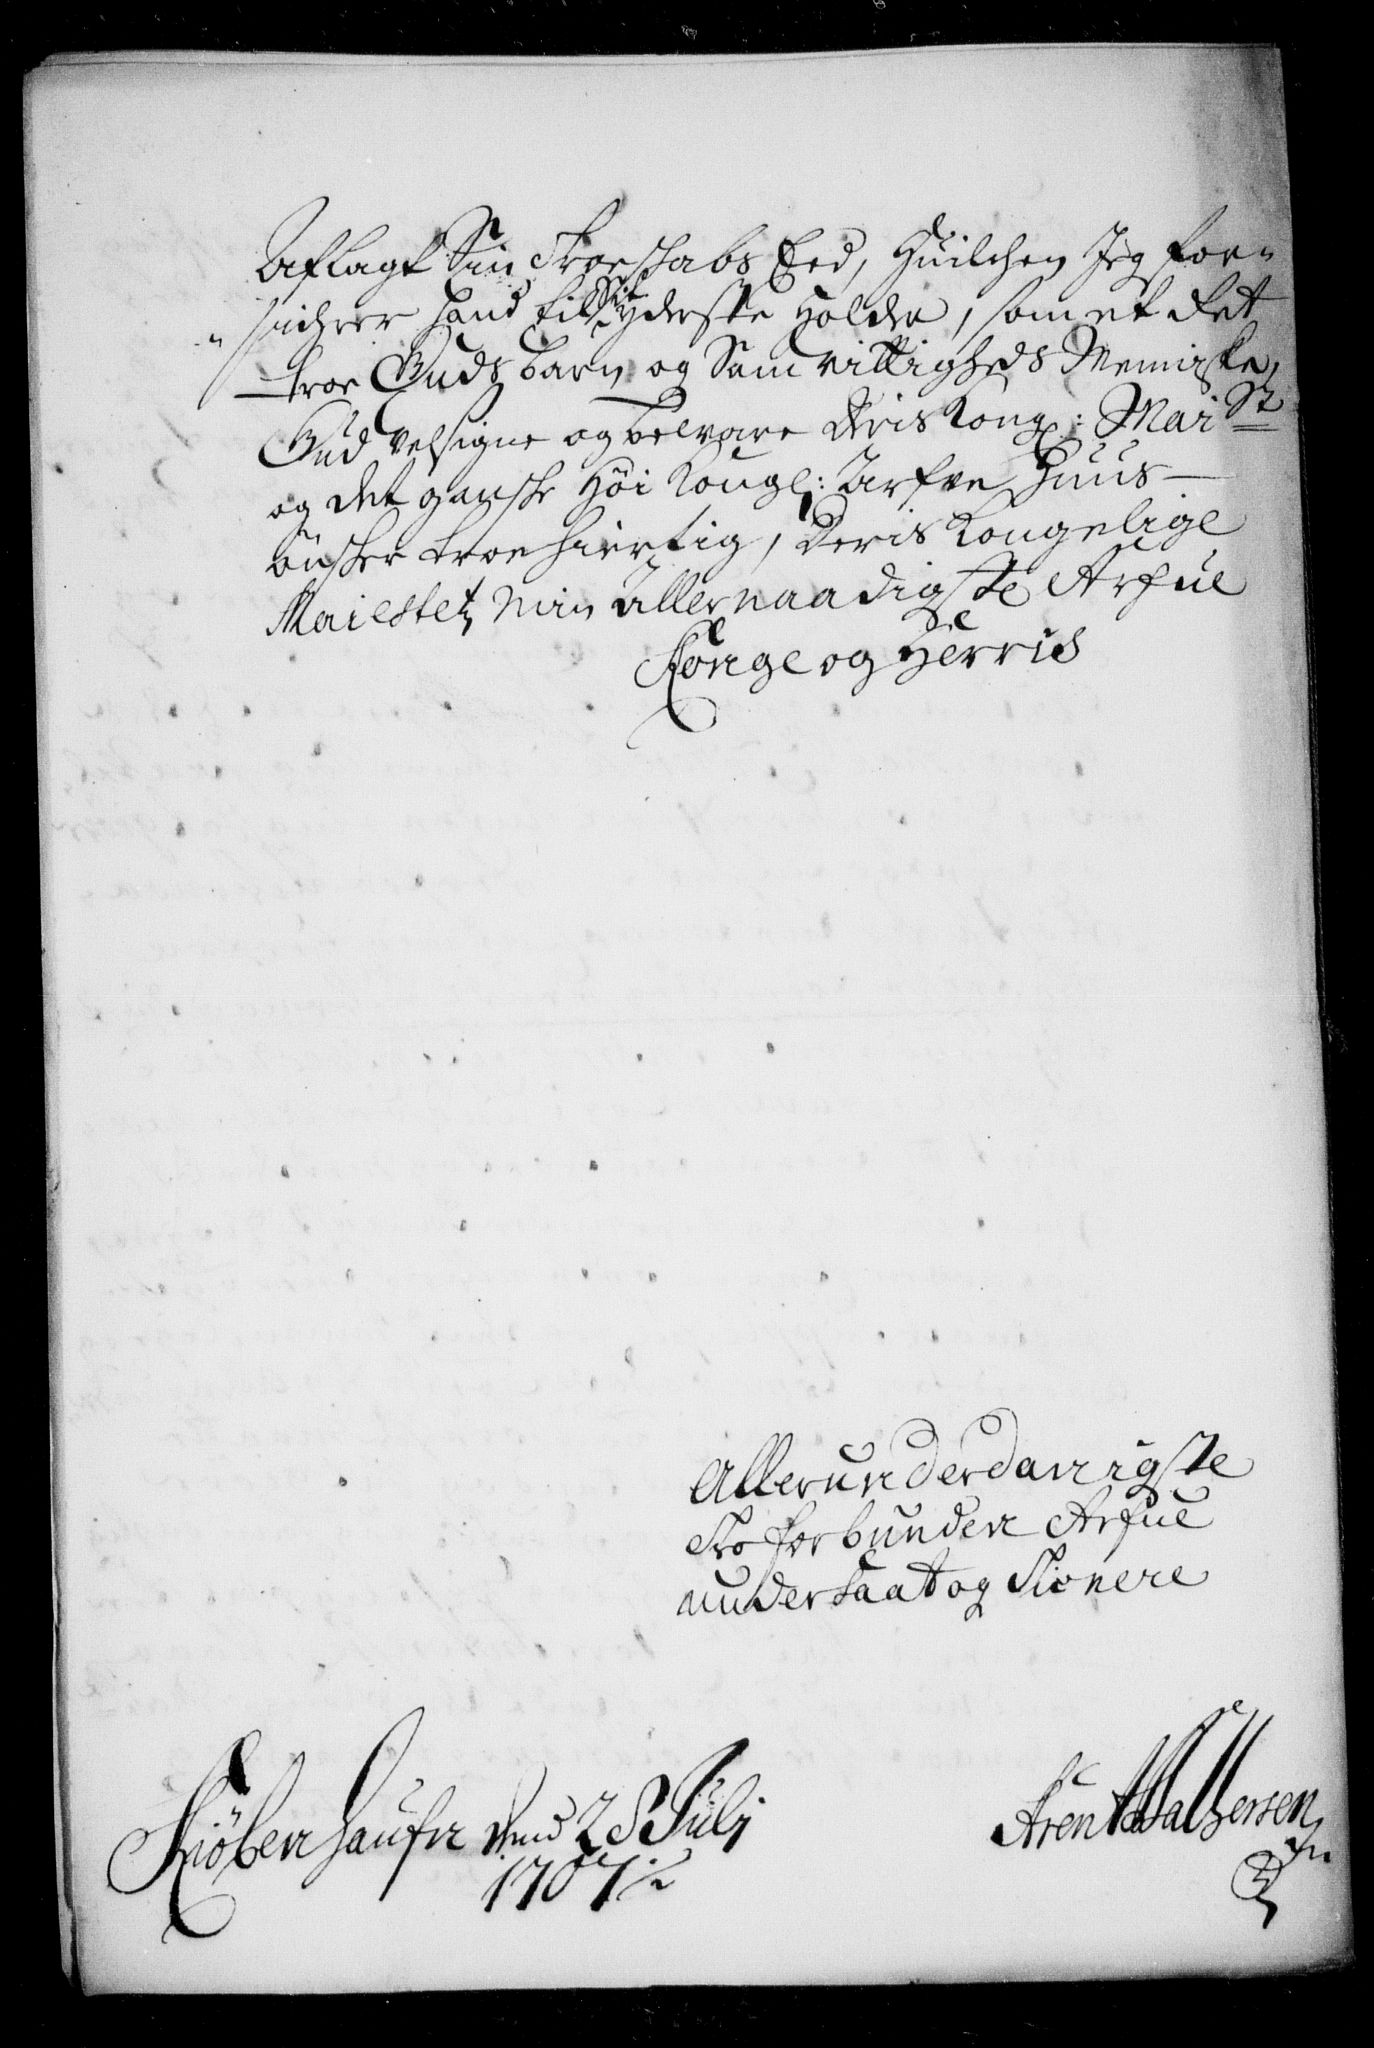 Aflagt Sin Troeskabs Eed, Huilchen Jeg for-
sichrer hand till Sit Yderste Holder, som et Ret
troe Guds barn og Samvittigheds Menniske,
Gud velsigne og bevare Deris Kongl: Maist
og det gansche Høi Kongl: Arfve Huus
ønsker troehiertig, Deris Kongelige
Maiestet Min Allernaadigste Arfue
Konge og Herris
Allerunderdanigste
Tro forbunden Arfue
undersaat og Tienere
Kiöbenhaufn dend 28 Julj
1707
Arent Walhersen